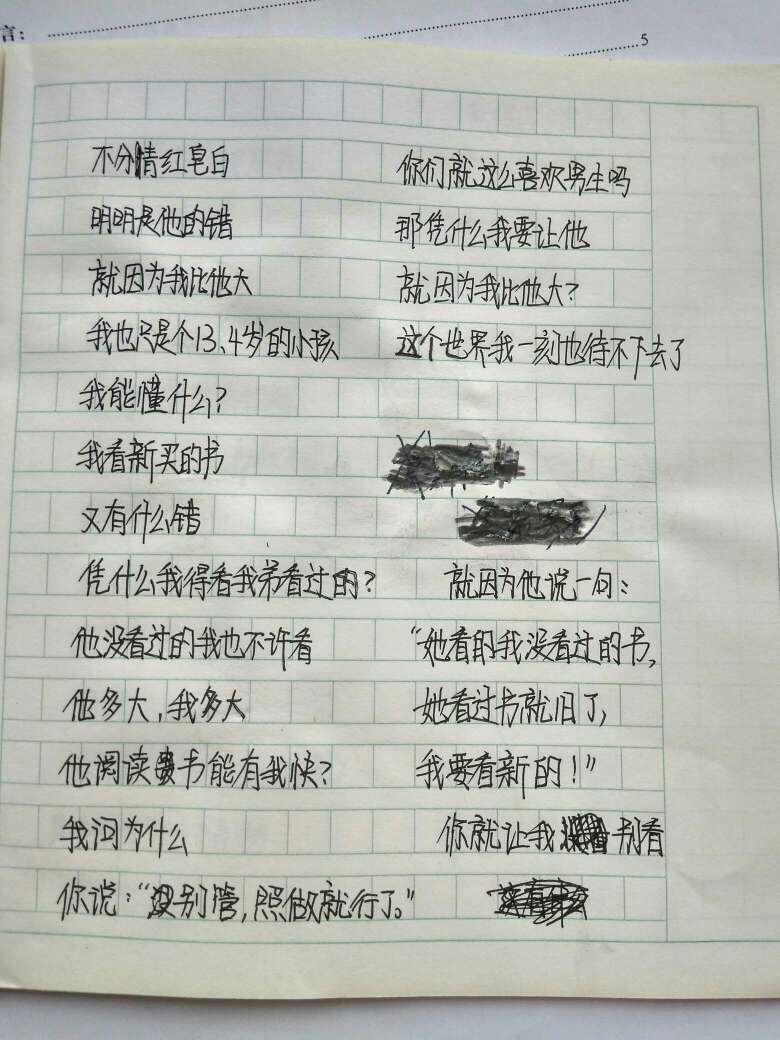 言:
5
不分情红皂白
明明是他的错
就因为我比他大
我也只是个13、4岁的小孩
我能懂什么?
我看新买的书
又有什么错
凭什么我得看我弟看过的?
他没看过的我也不许看
他多大,我多大
他阅读书能有我快?
我问为什么
你说:“别管,照做就行了。”
你们就这么喜欢男生吗
那凭什么我要让他
就因为我比他大?
这个世界我一刻也待不下去了
就因为他说一句:
“她看的我没看过的书,
她看过书就旧了,
我要看新的!”
你就让我别看